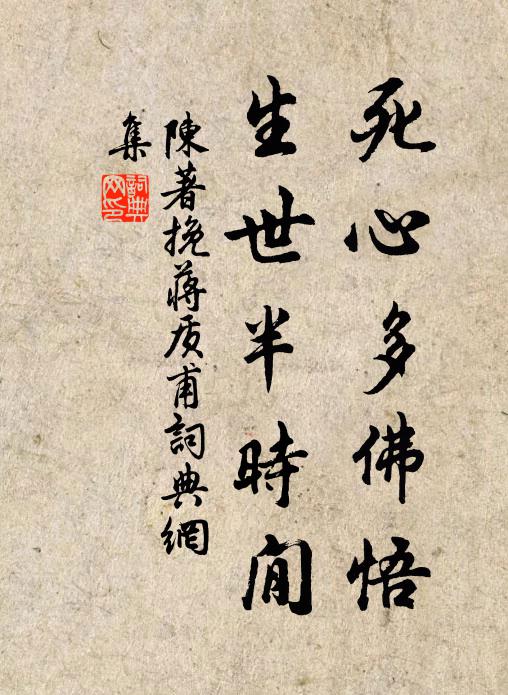 死心多佛悟
生世半時閒
陳著挽蔣质甫詞典網
集
詞典
网印